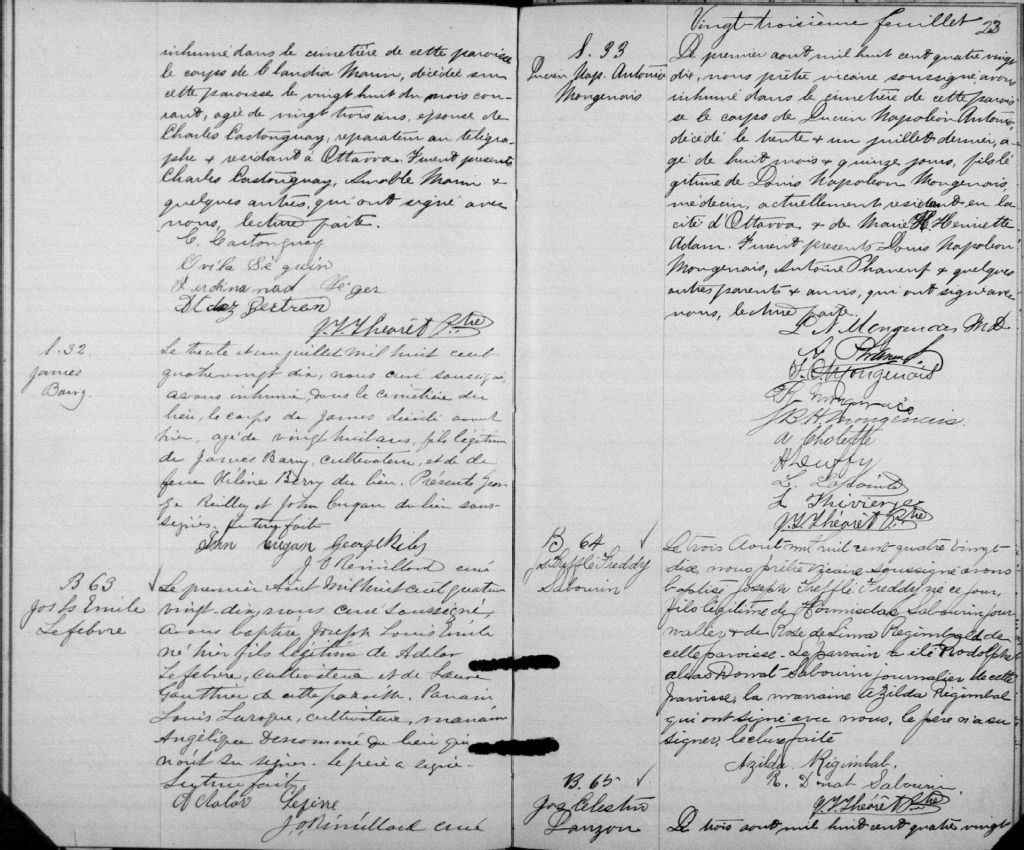 inhumé dans le cimetière de cette paroisse
le corps de Claudia Marin, décédée sur
cette paroisse le vingt huit du mois cou-
rant, agée de vingt trois ans, epouse de
Charles Castonguay, reparateur au télégra-
phe & residant à Ottawa. Furent presents
Charles Castonguay, Amable Marin &
quelques autres, qui ont signé avec
nous, lecture faite.
C. Castonguay
Ovila Séguin
Ferdinanad Léger
Bertran
J. T. Théorêt Ptre
S. 32.
James
Barry.
Le trente et un juillet mil huit cent
quatrevingt dix, nous curé soussigné,
avons inhumé dans le cimetière du
lieu, le corps de James décédé avant
hier, agé de vingt huit ans, fils légitime
de James Barry, cultivateur, et de
feue Hélène Barry du lieu. Présents Geor-
ge Reilley et John Cregan du lieu sous-
signés. Lecture faite
John Cregan George
J. O Remillard curé
B 63
Jos Ls Emile
Lefebvre
Le premier Août Mil huit cent quatre
vingt-dix, nous curé soussigné,
avons baptisé Joseph Louis Emile
né hier fils légitime de
Lefebvre, cultivateur et de Laura
Gauthier de cette paroisse. Parrain
Louis Laroque, cultivateur, marraine
Angélique Denommé du lieu qui
n'ont su signer. Le père a signé.
Lecture faite
Lefevre
J. O Rémillard curé
Vingt-troisième feuillet 23
S. 33
Lucien Nap. Antonio
Mongenais
Le premier aout mil huit cent quatre vingt
dix, nous prêtre vicaire soussigné avons
inhumé dans le cimetière de cette parois-
se le corps de Lucien Napoléon Antonio,
décédé le trente & un juillet dernier, a-
gé de huit mois & quinze jours, fils lé
gitime de Louis Napoleon Mongenais,
médecin, actuellement residant en la
cité d'Ottawa & de Marie H Henriette
Adam. Furent presents Louis Napoleon
Mongenais, Antoine Phaneuf & quelques
autres parents & amis, qui ont signé avec
nous, lecture faite.
L N Mongenais MD
A. Phaneuf
F. O. Mongenais
J B H. Mongenais.
A Cholette
H Duffy
L. Lapointe
L Thivierge
J. T. Théorêt Ptre
B. 64
Js Trefflé Freddy
Sabourin
Le trois Aout mil huit cent quatre vingt-
dix, nous prêtre Vicaire soussigné avons
baptisé Joseph Trefflé Freddy né ce jour,
fils légitime de Hormisdas Sabourin jour-
nalier & de Rose de Lima Regimbald de
cette paroisse. Le parrain a été Rodolphe
alias Donat Sabourin journalier de cette
paroisse, la marraine Azilda Régimbal
qui ont signé avec nous, le père n'a su
signer, lecture faite
Azilda. Régimbal.
R. Donat Sabourin.
J. T. Théorêt Ptre
B. 65
Jos Célestin
Lanzon
Le trois aout mil huit cent quatre vingt